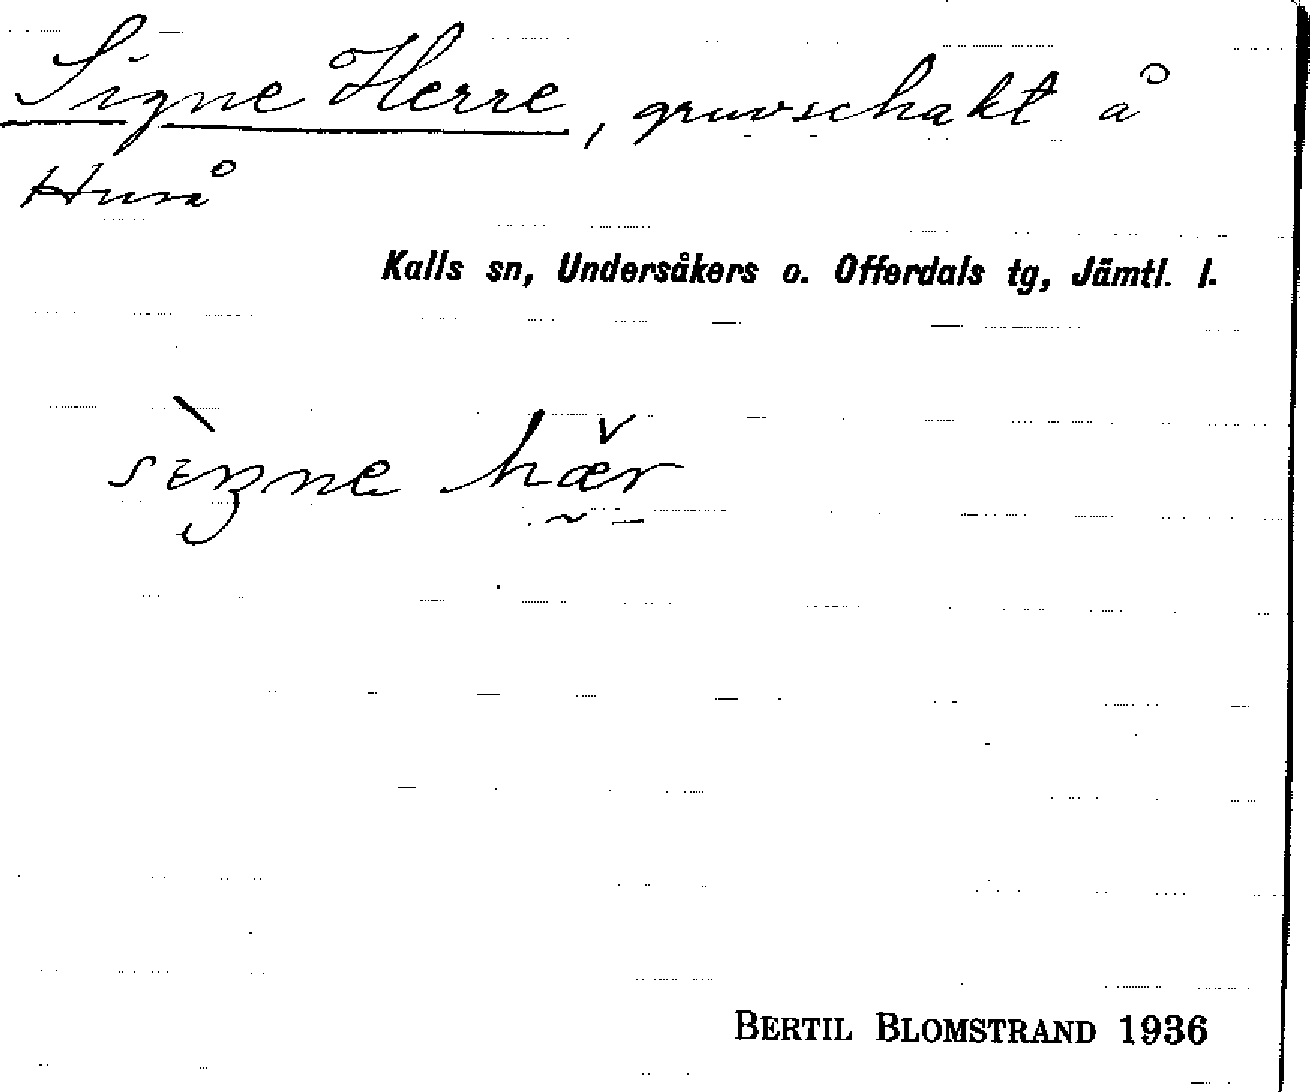 Signe Herre, gruvschakt å
Huså
Kalls sn, Undersåkers o. Offerdals tg, Jämtl. l.
hær
BERTIL BLOMSTRAND 1936